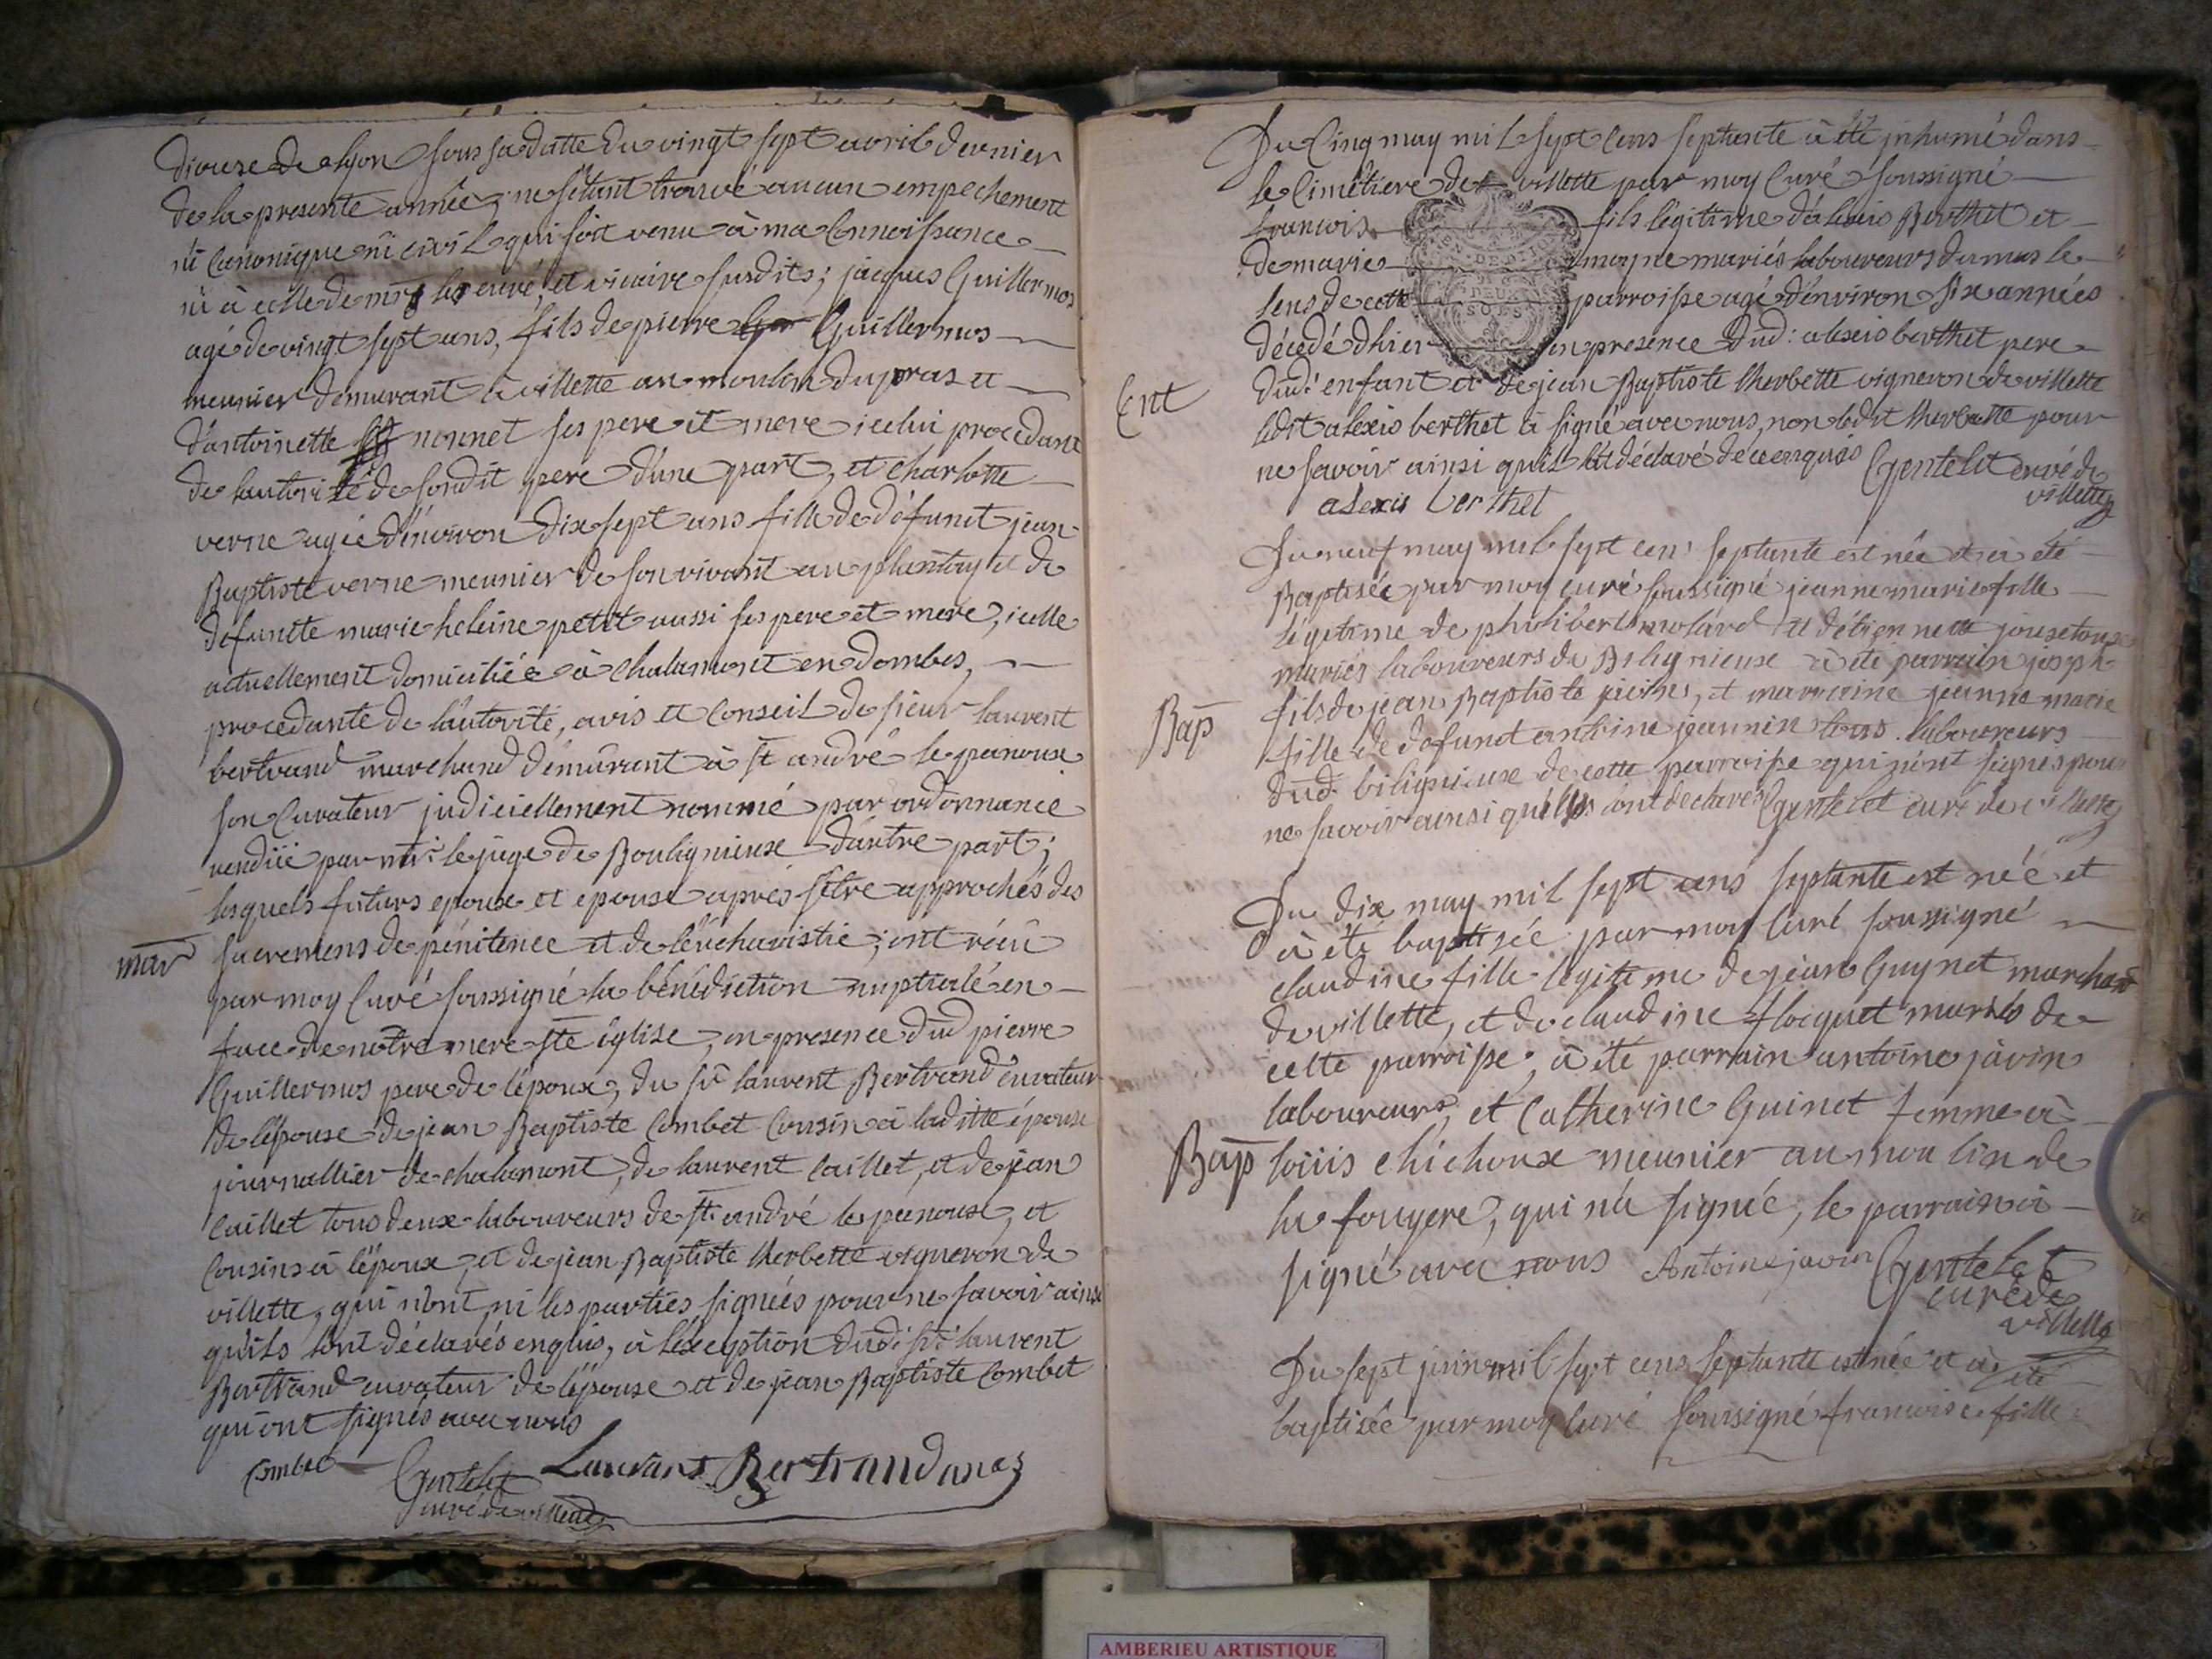 diocese de lyon sous sa datte du vingt sept avril dernier
de la presente année, ne s'étant trouvé aucun empechement
ni canonique ni civil qui soit venu à ma connoissance
ni à celle de mrs les curé, et vicaire susdits; jacques Guillermos
agé de vingt sept ans, fils de pierre Guillermos
meunier demeurant à villette au moulin du pras et
d'antoinette nonnet ses pere et mere icelui procedant
de l'autorité de sondit pere d'une part, et charlotte
verne agée d'environ dix sept ans fille de défunct jean
Baptiste verne meunier de son vivant au plantay et de
defuncte marie heleine petit aussi ses pere et mere, icelle
actuellement domiciliée à chalamont en dombes,
procedante de l'autorité, avis et conseil de sieur laurent
bertrand marchand demeurant à st andré le panoux
son curateur judiciellement nommé par ordonnance
rendüe par mr le juge de Bouligneux d'autre part;
lesquels futurs epoux et epouse aprés s'être approchés des
mar
sacremens de pénitence et de l'eucharistie; ont reçû
par moy curé soussigné la bénédiction nuptiale en
face de notre mere ste église, en presence dud pierre
Guillermos pere de l'époux, du sr laurent Bertrand curateur
de l'épouse de jean Baptiste Combet cousin à laditte épouse
journallier de chalamont, de laurent caillet, et de jean
caillet tous deux laboureurs de st andré le panoux, et
cousins à l'époux, et de jean Baptiste therbette vigneron de
villette, qui n'ont ni les parties signées pour ne savoir ainsi
qu'ils l'ont déclarés enquis, à l'exeption dudi sr laurent
Bertrand curateur de l'épouse et de jean Baptiste Combet
qui ont signés avec nous
Combet Gentelet Laurans Bertrand
curé de villette
Du cinq may mil sept cens septante à été inhumé dans
le cimetiere de villette par moy curé soussigné
francois fils légitime d'alexis Berthet et
de marie moyne mariés laboureurs du mas le
lens de cette parroisse agé d'environ six années
décédé d'hier en presence dud: alexis berthet pere
Ent
dud: enfant et de jean Baptiste therbette vigneron de villette
ledit alexis berthet à signé avec nous, non ledit therbette pour
ne savoir ainsi qu'il l'at déclaré de ce enquis Gentelet curé de
villette
alexis berthet
Du neuf may mil sept cens septante est née et à été
Baptisée par moy curé soussigné jeanne marie fille
légitime de philibert molard et d'étiennette
mariés laboureurs de Bilignieux à été parrain joseph
fils de jean Baptiste, et marraine jeanne marie
Bap
fille de defunct antoine jeannin tous laboureurs
dud. biligneux de cette parroisse qui n'ont signés pour
ne savoir ainsi qu'ils l'ont déclarés Gentelet curé de villette
Du dix may mil sept cens septante est née et
à été baptisée par moy curé soussigné
claudine fille légitime de jean Guynet marchand
de villette, et de claudine flocquet mariés de
cette parroisse, à été parrain antoine javin
laboureur, et Catherine Guinet femme à
Bap
loüis chichoux meunier au moulin de
la fougere, qui n'a signée, le parrain à
signé avec nous Antoine javin Gentelet
curé de
villette
Du sept juin mil sept cens septante est née et à été
baptisée par moy curé soussigné francoise fille
AMBERIEU ARTISTIQUE